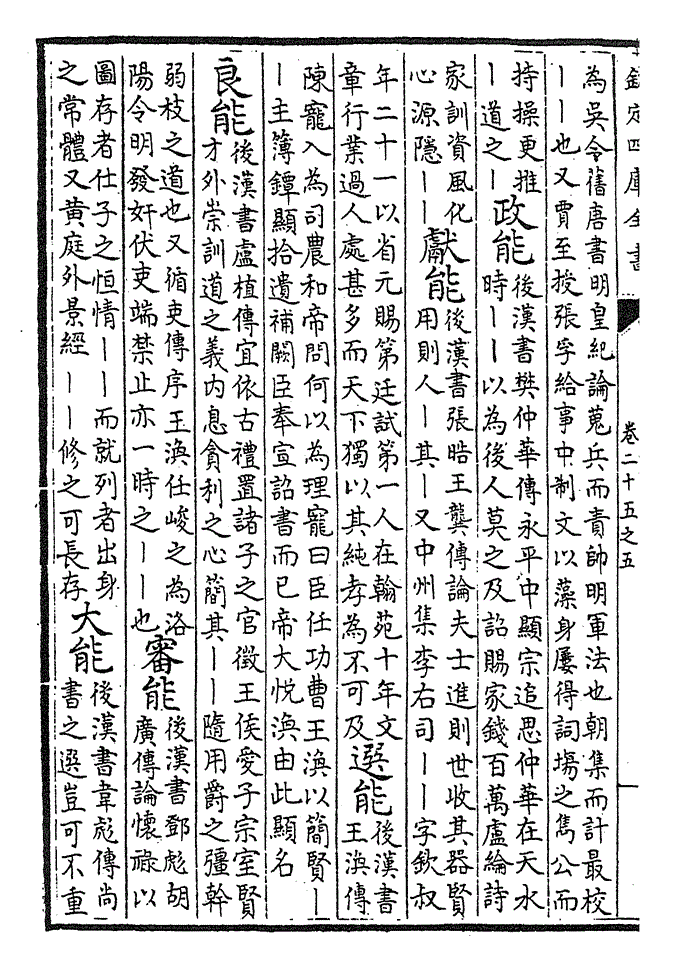 欽定四庫全書
卷二十五之五
為吳令舊唐書明皇紀論蒐兵而責帥明軍法也朝集而計最校
——也又賈至授張孚給事中制文以藻身屢得詞場之雋公而
持操更推
——道之—
政能
後漢書樊仲華傳永平中顯宗追思仲華在天水
時——以為後人莫之及詔賜家錢百萬盧綸詩
家訓資風化
心源隱——
獻能
後漢書張晧王龔傳論夫士進則世收其器賢
用則人—其—又中州集李右司——字欽叔
年二十一以省元賜第廷試第一人在翰苑十年文
章行業過人處甚多而天下獨以其純孝為不可及
選能
後漢書
王渙傳
陳寵入為司農和帝問何以為理寵曰臣任功曹王渙以簡賢—
—主簿鐔顯拾遺補闕臣奉宣詔書而已帝大悅渙由此顯名
良能
後漢書盧植傳宜依古禮置諸子之官徵王侯愛子宗室賢
才外崇訓道之義内息貪利之心簡其——隨用爵之彊幹
弱枝之道也又循吏傳序王渙任峻之為洛
陽令明發奸伏吏端禁止亦一時之——也
審能
後漢書鄧彪胡
廣傳論懷祿以
圖存者仕子之恒情——而就列者出身
之常體又黄庭外景經——修之可長存
大能
後漢書韋彪傳尚
書之選豈可不重